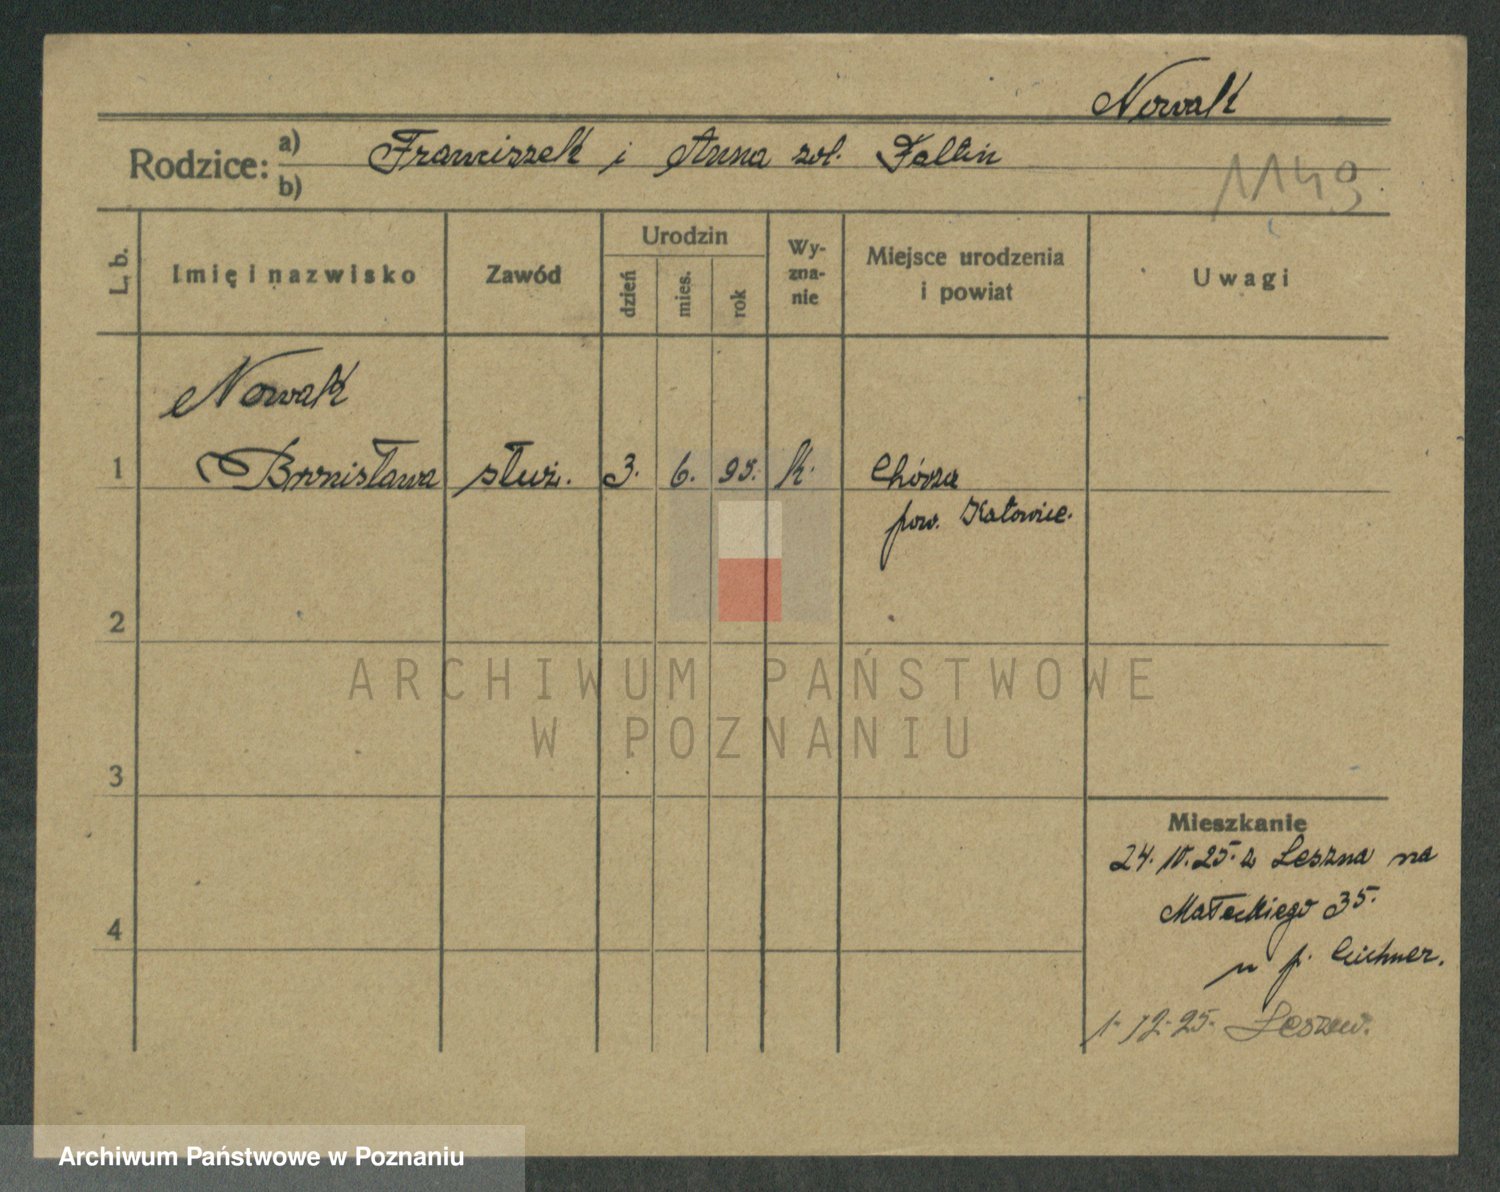 Nowak
Rodzice: a) Franciszek i Anna zol. Faltin
b)
1149
L. b.
Imię i nazwisko
Zawód
Urodzin
dzień
mies.
rok
Wy-
zna-
nie
Miejsce urodzenia
i powiat
Uwagi
Nowak
1 Bronisława służ. 3. 6. 95. k.
pow. Katowice.
2
ARCHIWUM PAŃSTWOWE
W POZNANIU
3
Mieszkanie
24. 10. 25. z Leszna na
Małeckiego 35.
4
u p. Eichner.
1. 12. 25. Leszno.
Archiwum Państwowe w Poznaniu